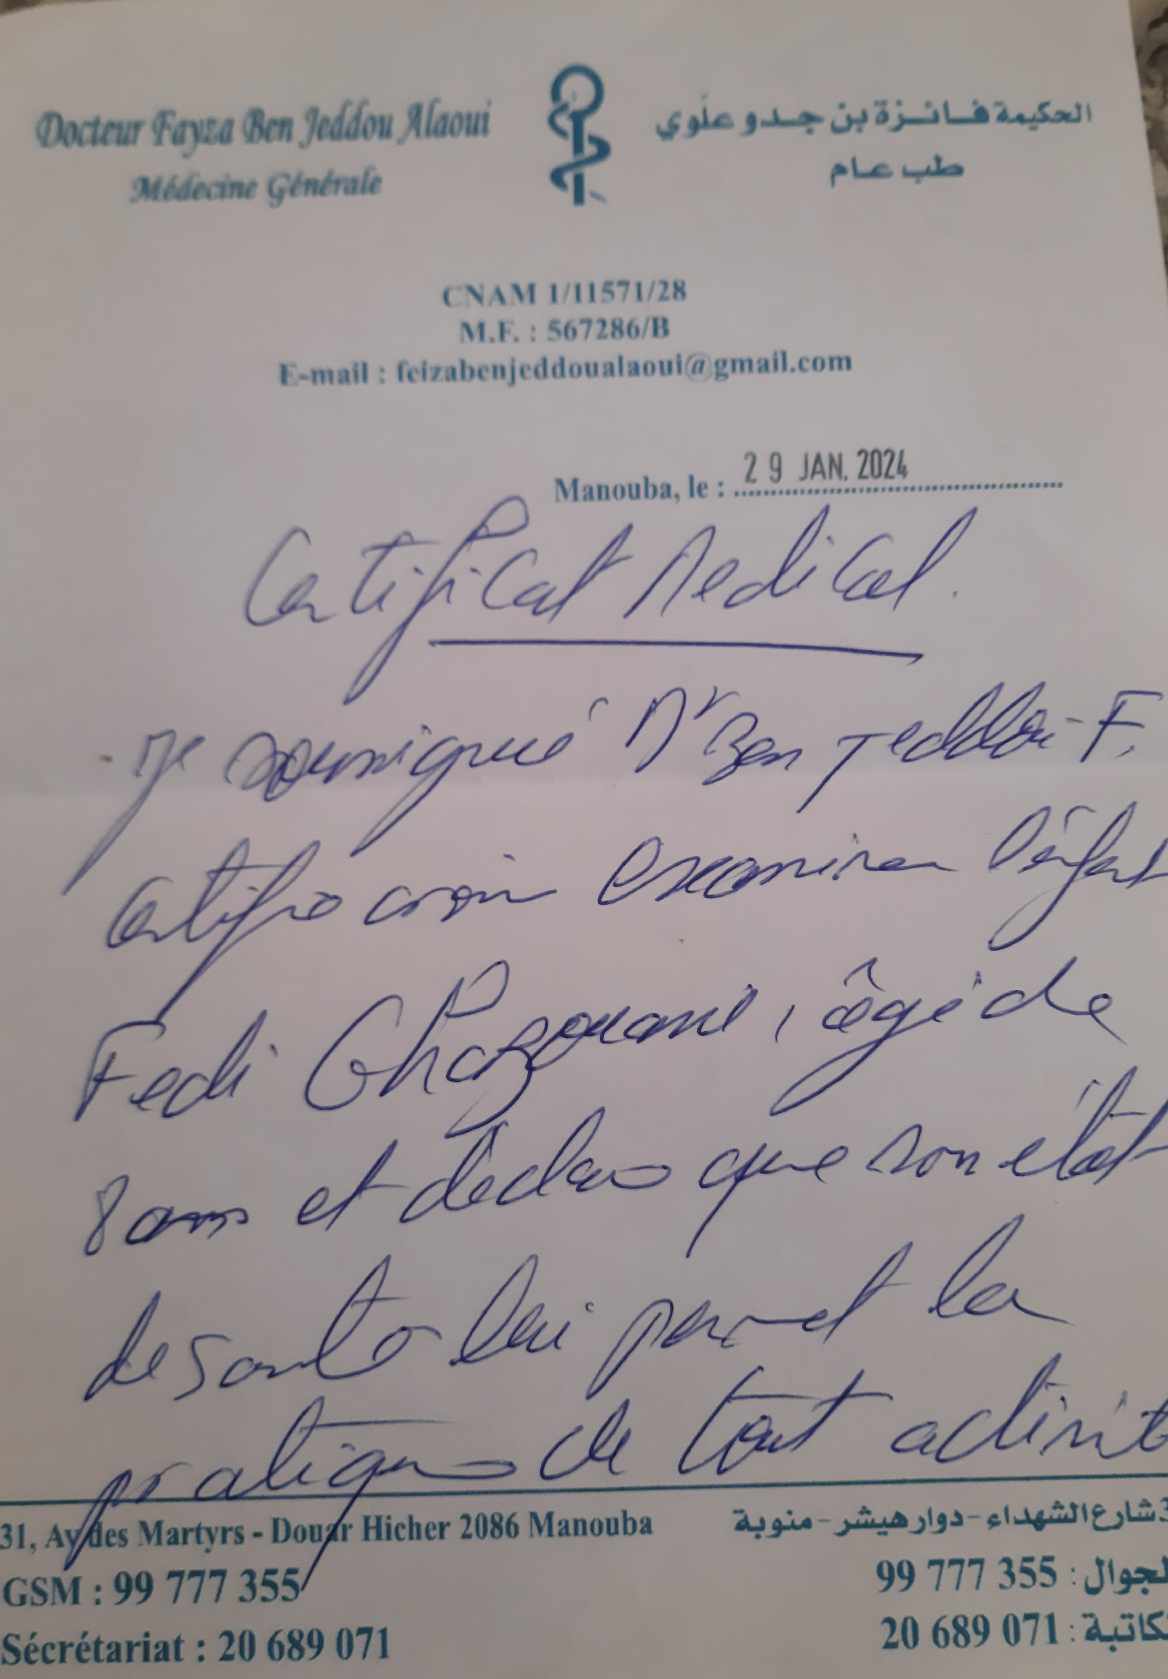 Docteur Fayza Ben Jeddou Alaoui
Médecine Générale
الحكيمة فائزة بن جدو علوي
طب عام
CNAM 1/11571/28
M.F. : 567286/B
E-mail : feizabenjeddoualaoui@gmail.com
Manouba, le : 29 JAN. 2024
Certificat Medical.
Je soussigné Dr Ben Jeddou F.
certifie avoir examiner l'enfant
Fedi Ghazouani, âgé de
8 ans et déclare que son état
de santé lui permet la
pratique de tout activité
31, Av des Martyrs - Douar Hicher 2086 Manouba
GSM : 99 777 355
Sécrétariat : 20 689 071
3 شارع الشهداء - دوار هيشر - منوبة
لجوال : 355 777 99
كاتبة : 071 689 20